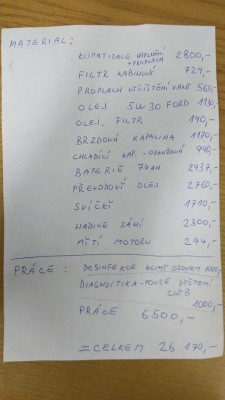 MATERIAL:
KLIMATIZACE NAPLNĚNÍ + PROPLACH 2800,-
FILTR KABINOVÝ 729,-
PROPLACH VYČIŠTĚNÍ VANY 560,-
OLEJ 5W30 FORD
OLEJ. FILTR 140,-
BRZDOVÁ KAPALINA 1170,-
CHLADÍCÍ KAP. - ORANŽOVÁ
BATERIE 74AH 2937,-
PŘEVODOVÝ OLEJ 2760,-
SVÍČKY 1710,-
HADICE SÁNÍ 2300,-
MYTÍ MOTORU 294,-
PRÁCE: DESINFEKCE KLIMY OZONEM 1000,-
DIAGNOSTIKA - POUZE VYČTENÍ CHYB 1000,-
PRÁCE 6500,-
= CELKEM 26 170,-